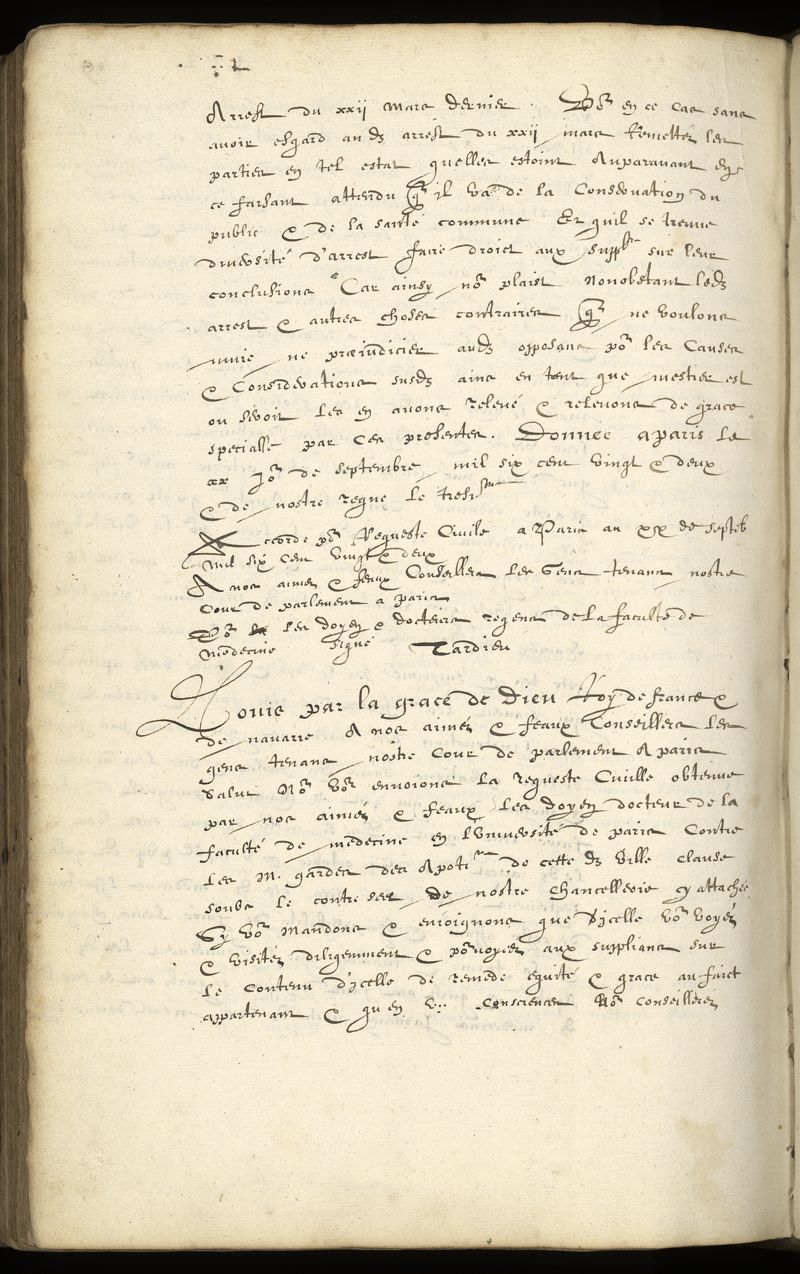 Arrest du xxij mars dernier. Vo9 en ce cas sans
avoir esgard aud. arrest du xxij mars Remettez les
parties en tel estat quelles estoint Auparavant en
ce faisant attendu q il va de la Conservation du
public & de la santé commune Et quil se treuve
diversité d'arrest faire droict aux suppls sur leur
conclusions Car ainsy no9 plaist Nonobstant lesd
arrest & autres choses contraires q ne voulons
nuire ne præiudicier ausd opposans po9 les Causes
& Considerations susd ains en tant que mestier est
ou seroit les en avons relevé & relevons de grace
specialle par ces presentes. Donnee a paris le
xx Jo9 de septembre mil six cent vingt & deux
& de nostre regne le tresme
Accorde po9 Requeste Civile a Paris au xx de septeb
mil six cen vingt & deux
A nos amez & feaux Conseillers les Gens tenans nostre
Cour de parlement a paris
Po9 les doyen & docteurs regens de la faculté de
medecine signé Tardieu
Louis par la grace de Dieu Roy de france &
de navarre A nos aimés & feaux Conseillers les
gens tenans nostre Cour de parlement A paris
Salut No9 vo9 envoions la requeste Civille obtenue
par nos aimés & feaux les doyen docteur de la
faculté de medecine en l'Université de paris Contre
les M. gardes des Apotires de cette d. ville clause
soubs le contre seel de nostre chancellerie cy attachée
Sy vo9 Mandons & enioignons que d'icelle vo9 voyez
& visitez diligemment & po9voyez aux supplians sur
le Contenu d'icelle de remede equité & grace au faict
appartenant & qu en Consciences No9 Conseillerez